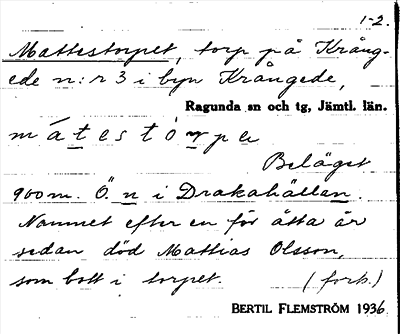 1-2.
Mattestorpet, torp på Krång-
ede n:r 3 i byn Krångede,
Ragunda sn och tg, Jämtl. län.
mátestòrpe
Beläget
900 m. Ö. n i Drakahällan.
Namnet efter en för åtta år
sedan död Mattias Olsson,
som bott i torpet. (forts.)
BERTIL FLEMSTRÖM 1936